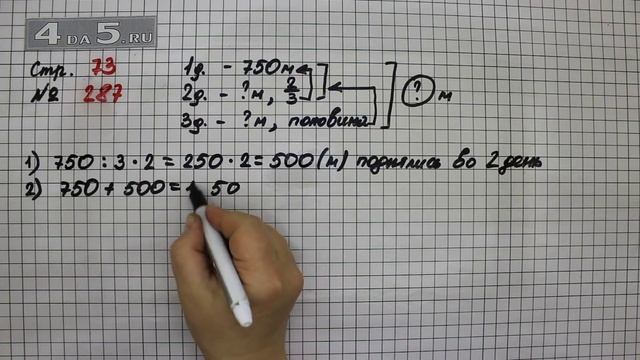 4DA5.RU
Стр. 73
№ 287
1д. - 750м
2д. - ?м, 2/3
3д. - ?м, половина
? м
1) 750 : 3 · 2 = 250 · 2 = 500 (м) поднялись во 2 день
2) 750 + 500 = 50